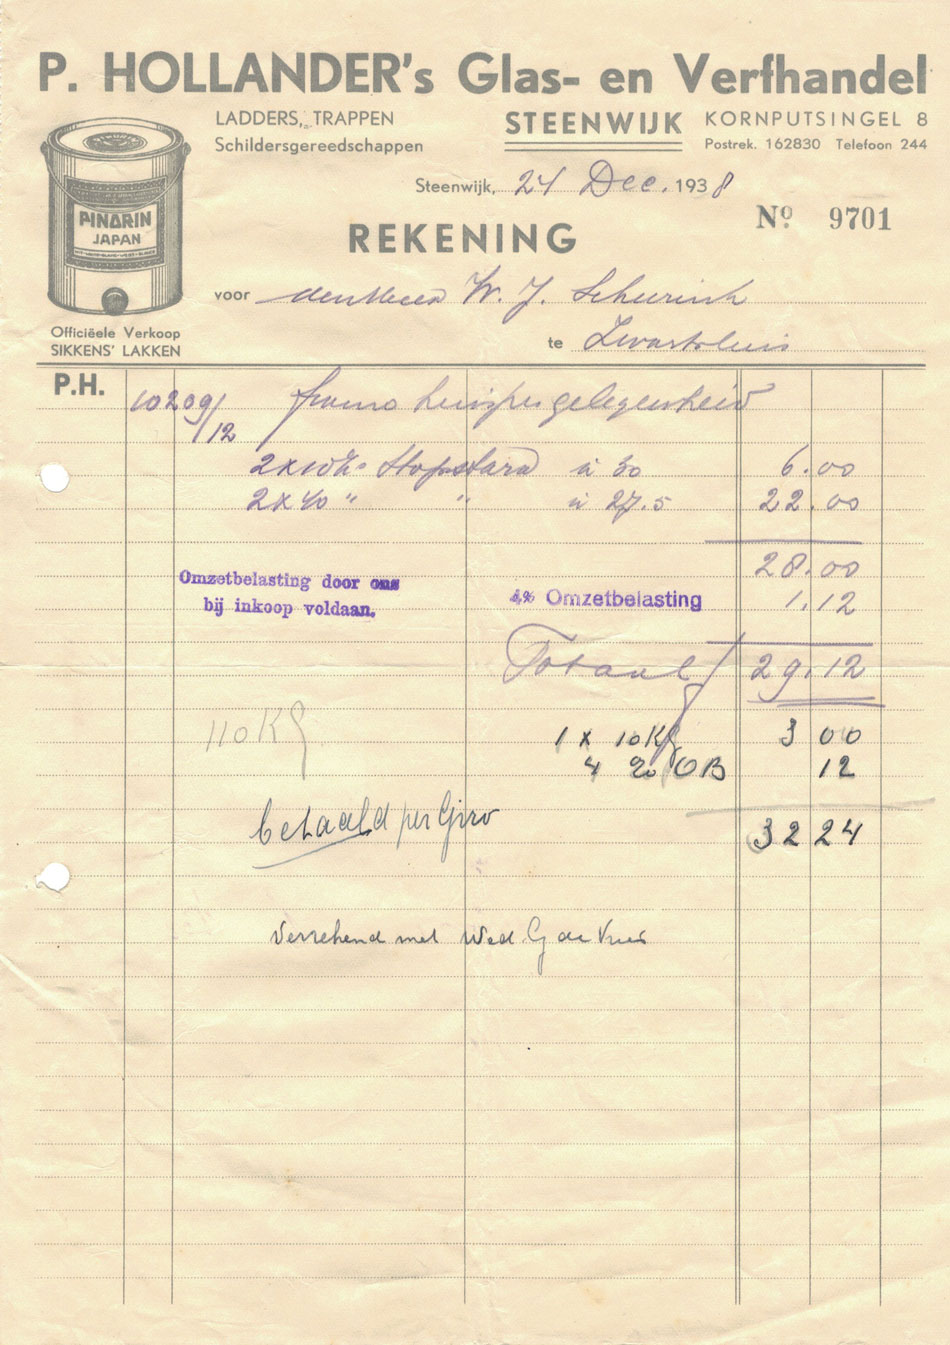 P. HOLLANDER's Glas- en Verfhandel
LADDERS, TRAPPEN
Schildersgereedschappen
STEENWIJK
KORNPUTSINGEL 8
Postrek. 162830 Telefoon 244
PINARIN
JAPAN
Officiëele Verkoop
SIKKENS' LAKKEN
Steenwijk, 24 Dec. 1938
No. 9701
REKENING
voor den Heer W. J. Scheurink
te Zwartsluis
P.H.
10209/12 franco per gelegenheid
2 x 10 K. Stopstara à 30 6.00
2 x 40 " " à 27.5 22.00
28.00
Omzetbelasting door ons
bij inkoop voldaan.
4% Omzetbelasting 1.12
Totaal 29.12
110 Kg
1 x 10 Kg 3 00
4 % OB 12
betaald per Giro
32 24
Verrekend met Wed. G de Vries